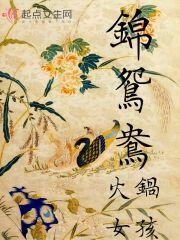 起点女生网
錦鴛鴦
火鍋女孩